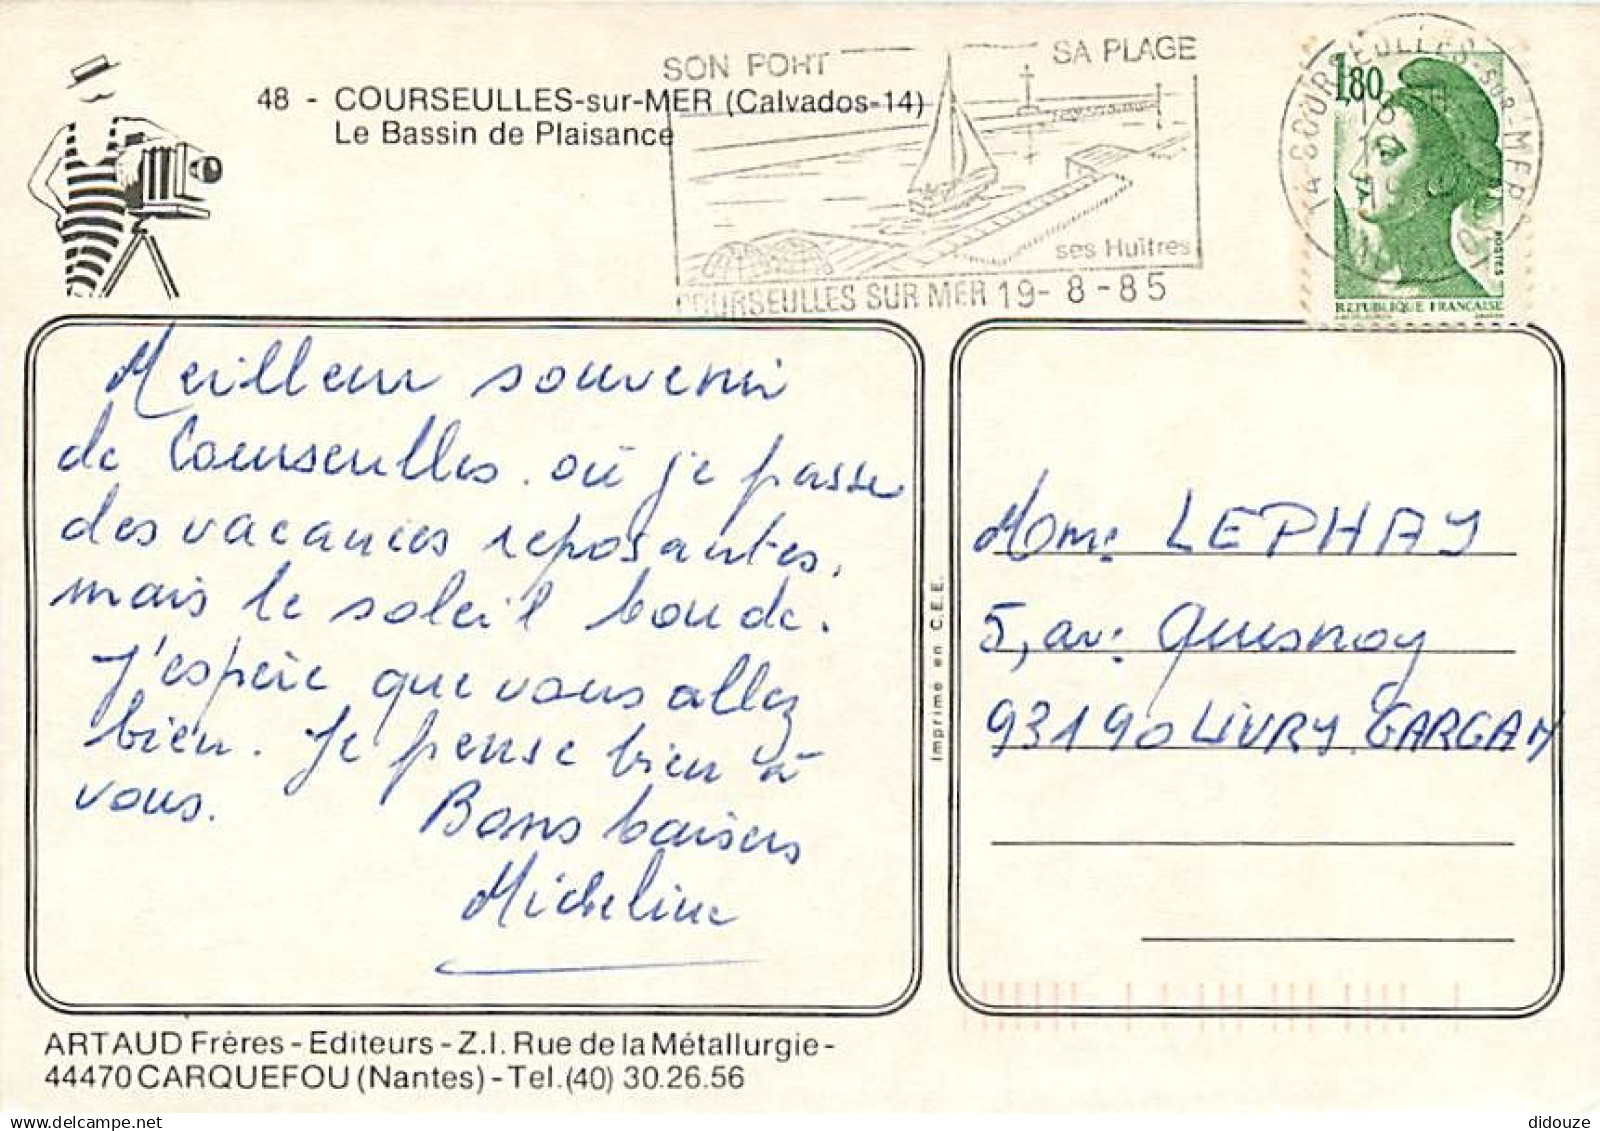 SON PORT
SA PLAGE
48 - COURSEULLES-sur-MER (Calvados-14)
Le Bassin de Plaisance
ses Huîtres
COURSEULLES SUR MER 19-8-85
14 COURSEULLES-SUR-MER
CALVADOS
1,80
POSTES
REPUBLIQUE FRANCAISE
Meilleur souvenir
de Courseulles où je passe
des vacances reposantes,
mais le soleil boude.
J'espère que vous allez
bien. Je pense bien à
vous.
Bons baisers
Micheline
Imprimé en C.E.E.
Mme LEPHAY
5, av. Quesnoy
93190 LIVRY. GARGAN
ARTAUD Frères - Editeurs - Z.I. Rue de la Métallurgie -
44470 CARQUEFOU (Nantes) - Tel. (40) 30.26.56
didouze